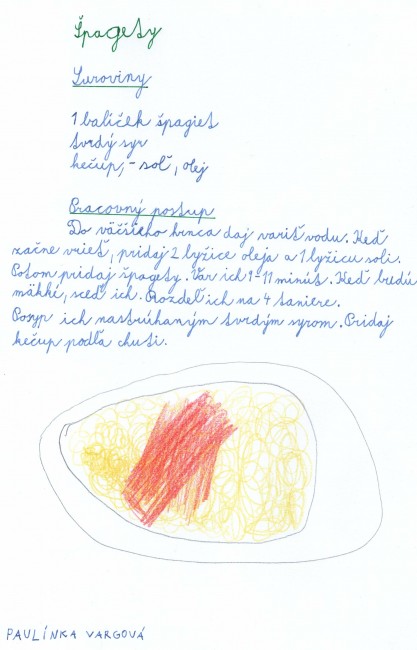 Špagety
Suroviny
1 balíček špagiet
tvrdý syr
kečup, - soľ, olej
Pracovný postup
Do väčšieho hrnca daj variť vodu. Keď
začne vrieť, pridaj 2 lyžice oleja a 1 lyžicu soli.
Potom pridaj špagety. Var ich 9-11 minút. Keď budú
mäkké, sceď ich. Rozdeľ ich na 4 taniere.
Posyp ich nastrúhaným tvrdým syrom. Pridaj
kečup podľa chuti.
PAULÍNKA VARGOVÁ